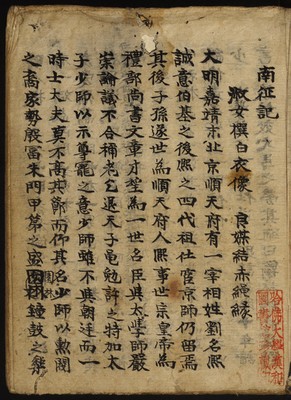 南征記
淑女撰白衣像 良媒結赤繩緣
大明嘉靖末北京順天府有一宰相姓劉名熙
誠意伯基之後熙之四代祖仕宦京師仍留焉
其後子孫遂世爲順天府人熙事世宗皇帝爲
禮部尚書文章才望爲一世名臣與太學師嚴
崇論議不合稱老乞退天子黽勉許之特加太
子少師以示尊寵之意少師雖不與朝廷而一
時士大夫莫不高其節而仰其名少師以勲閥
之裔家勢殷富朱門甲第之盛園林鐘鼓之樂